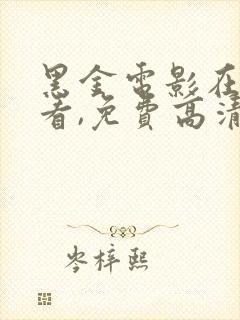 黑金電影在
看,免費高清
岑梓熙